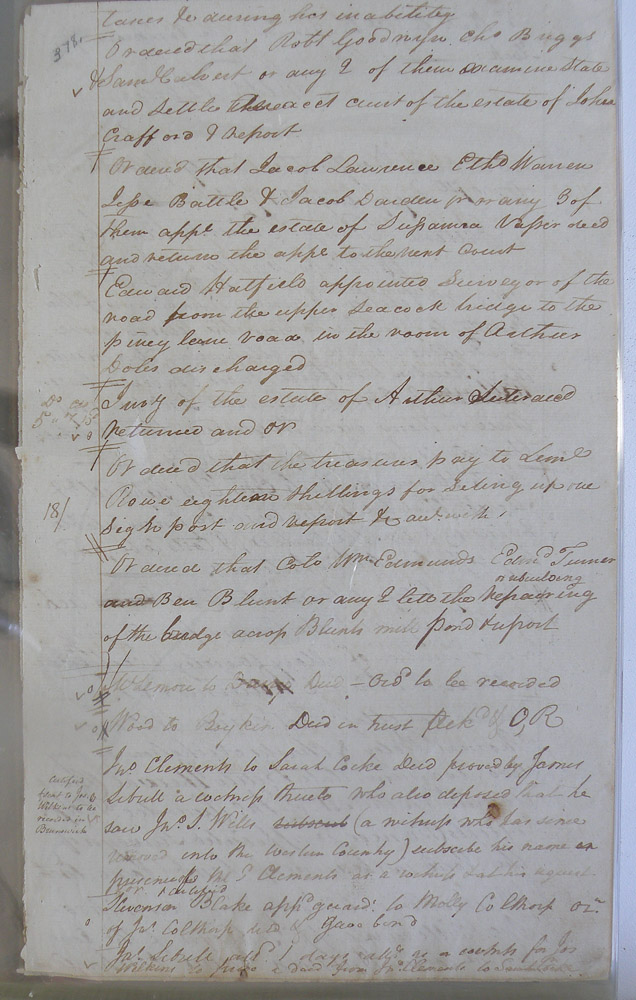 taxes &c during his inability
378.
Ordered that Robt Goodwyn Chs Briggs
& Saml Calvert or any 2 of them examine State
and settle the acct curt of the estate of John
Crafford & report
Ordered that Jacob Lawrence Ethd Warren
Jesse Battle & Jacob Darden jr or any 3 of
them appr the estate of Susanna Vasser decd
and return the appt to the next Court
Edward Hatfield appointed Surveyor of the
road from the upper Seacock bridge to the
piney lane road in the room of Arthur
Doles discharged
Invy of the estate of Arthur decd
returned and OR
Ordered that the treasurer pay to Leml
18/
Rowe eighteen shillings for seting up one
Sign post and report &
Ordered that Colo Wm Edmunds Edmd Turner
rebuilding
and Ben Blunt or any 2 let the repairing
of the bridge across Blunts mill pond & report
to Deed - Ord to be recorded
Wood to Boykin Deed in trust O, R
Jno Clements to Sarah Cocke Deed proved by James
Sebrell a witness thereto who also deposed that he
certified
to Jos
Wilkins to be
recorded in
Brunswick
saw Jno S. Wills subscrib (a witness who has since
removed into the Western Country) subscribe his name in
presence of the sd Clements as a witness
certified
Stevenson Blake appd guard. to Molly Colthorp or.
of Jas Colthorp decd & Gave bond
Jas Sebrell 1 days as a witness for Jos
Wilkins to prove a deed from Jno Clements to